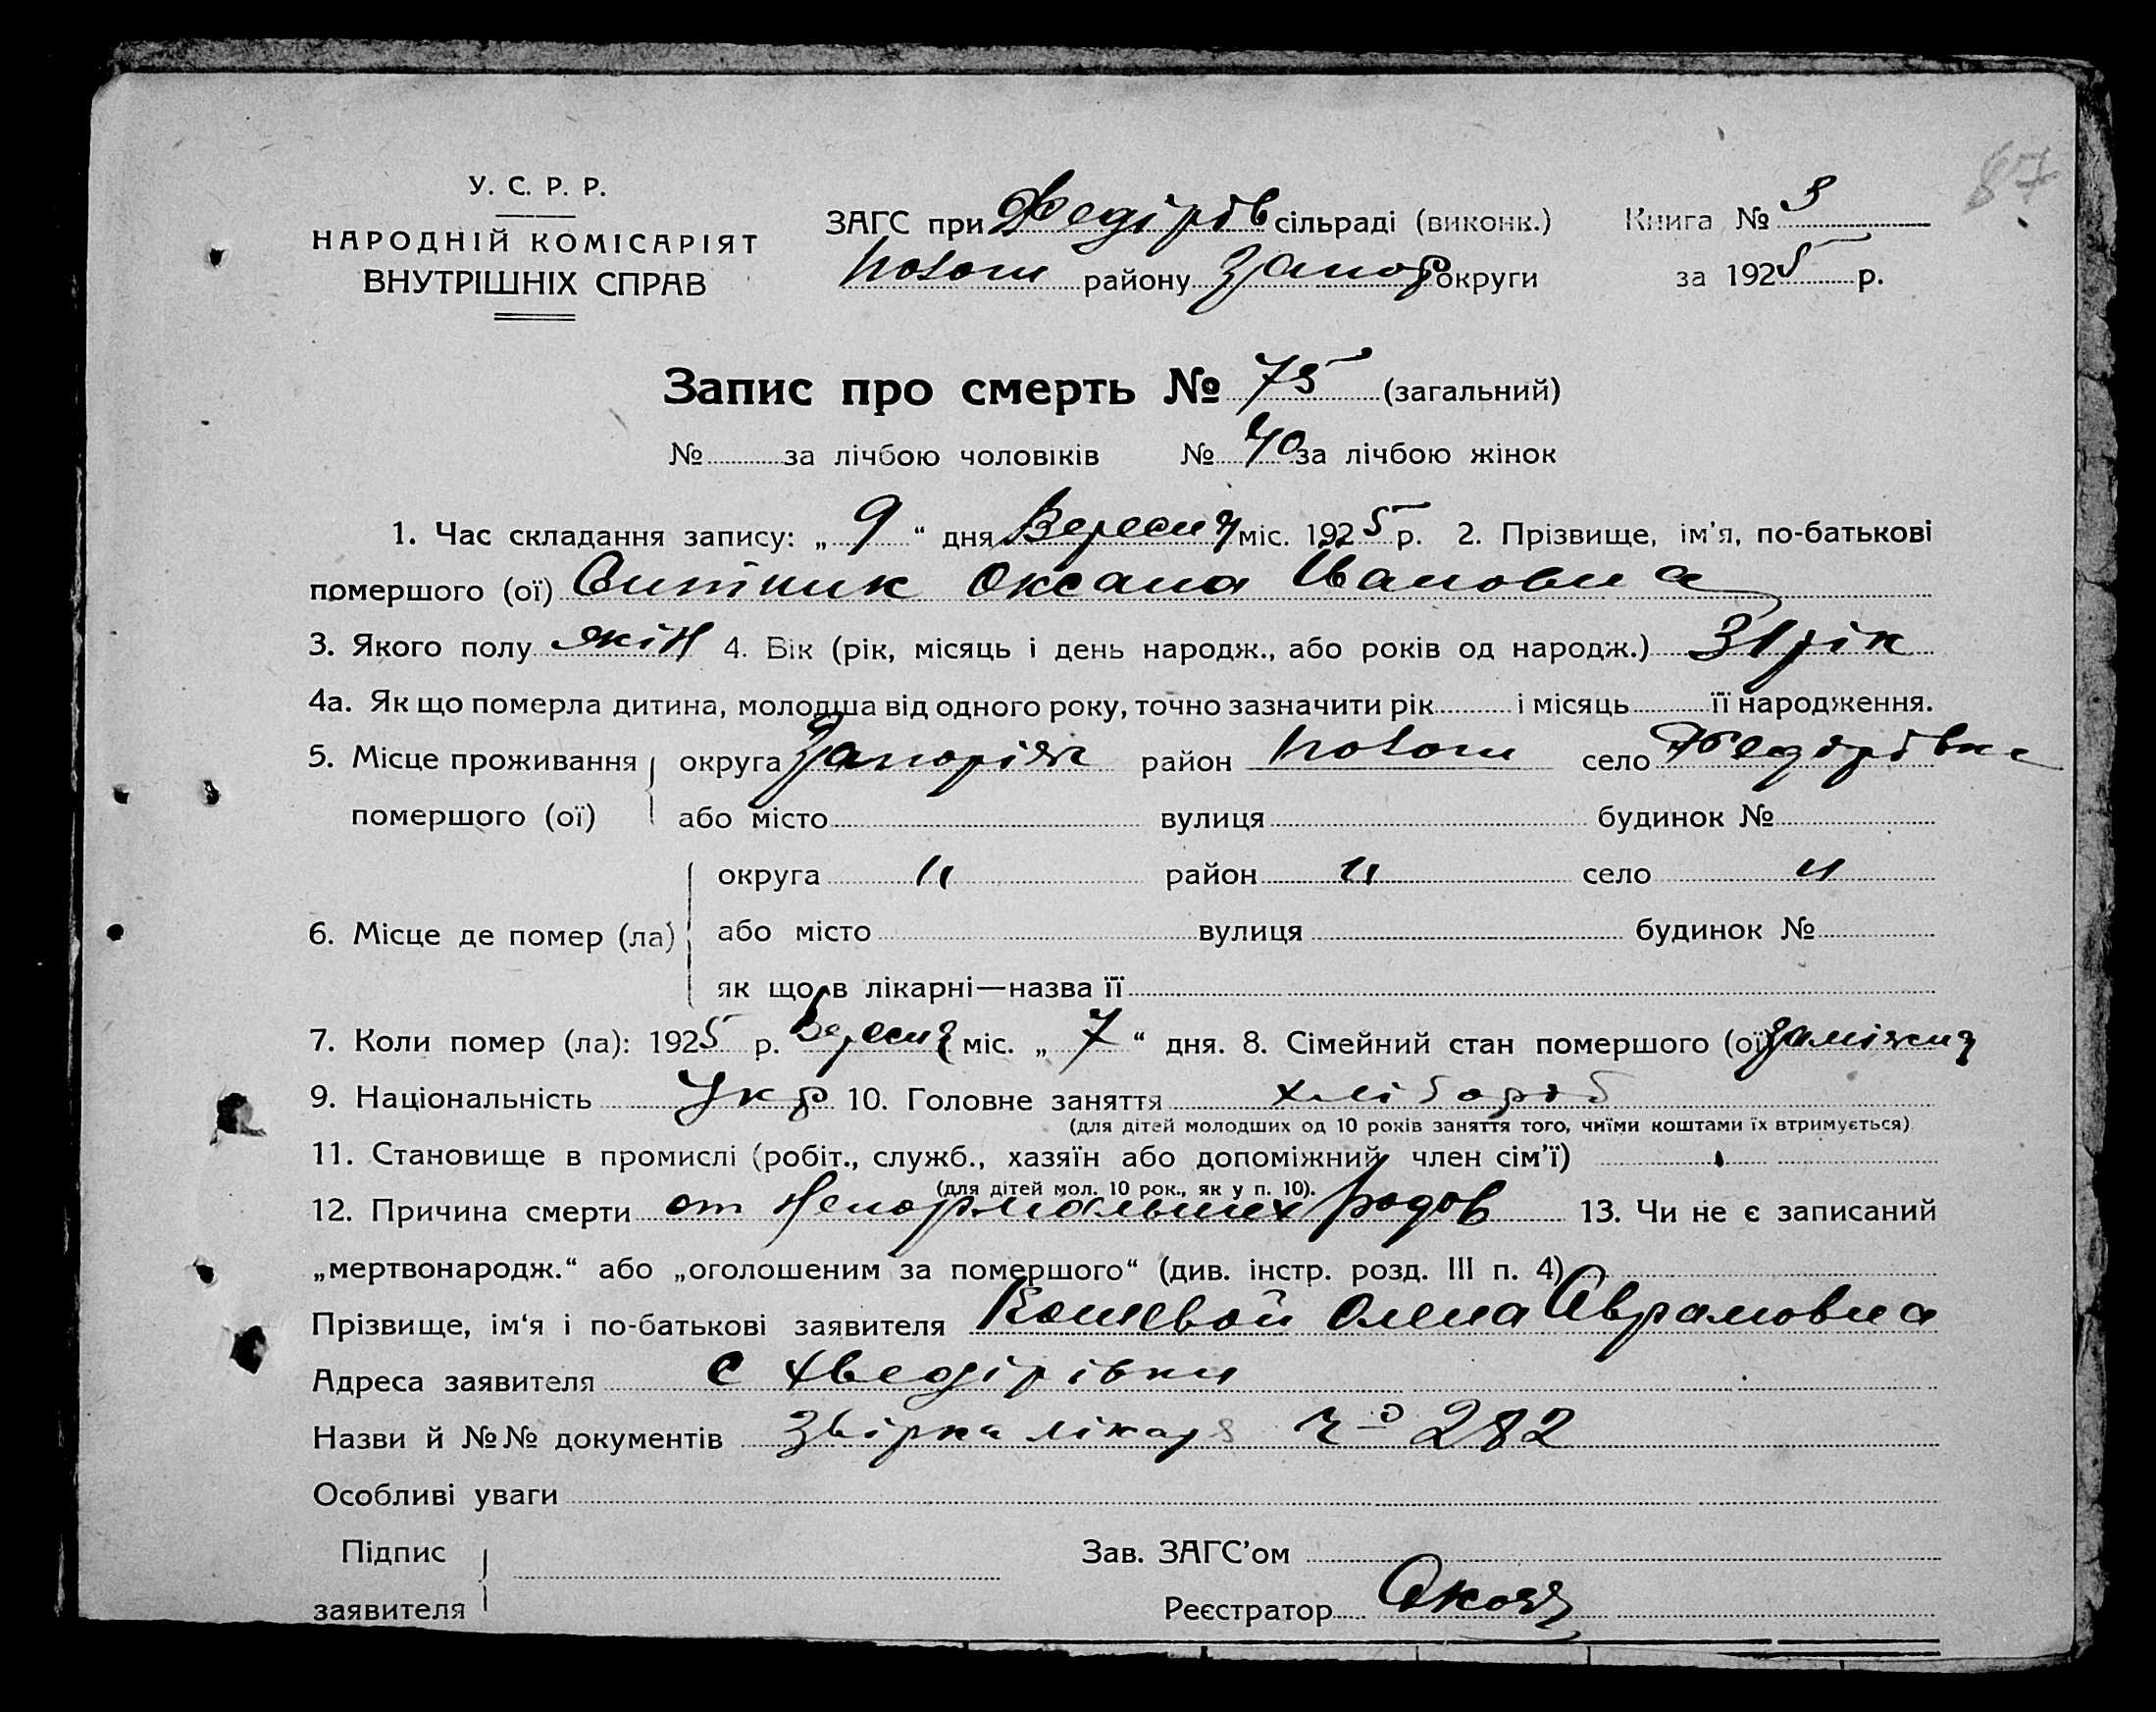 87
У. С. Р. Р.
НАРОДНІЙ КОМІСАРІЯТ
ВНУТРІШНІХ СПРАВ
ЗАГС при Федірів сільраді (виконк.) Книга № 3
району Запор округи за 1925 р.
Запис про смерть № 75 (загальний)
№ за лічбою чоловіків № 40 за лічбою жінок
1. Час складання запису: „ 9 “ дня Вересня міс. 1925 р. 2. Прізвище, ім'я, по-батькові
помершого (ої) Ситник Оксана Івановна
3. Якого полу жін 4. Вік (рік, місяць і день народж., або років од народж.) 31 рік
4а. Як що померла дитина, молодша від одного року, точно зазначити рік і місяць її народження.
5. Місце проживання округа Запоріж район село Федорівка
помершого (ої) або місто вулиця будинок №
округа " район " село "
6. Місце де помер (ла) або місто вулиця будинок №
як що в лікарні—назва її
7. Коли помер (ла): 1925 р. Вересня міс. „ 7 “ дня. 8. Сімейний стан помершого (ої) заміжня
9. Національність Укр 10. Головне заняття хлібороб
(для дітей молодших од 10 років заняття того, чиїми коштами їх втримується)
11. Становище в промислі (робіт., служб., хазяїн або допоміжний член сім'ї)
(для дітей мол. 10 рок., як у п. 10).
12. Причина смерти от Ненормальних родов 13. Чи не є записаний
„мертвонародж.“ або „оголошеним за помершого“ (див. інстр. розд. III п. 4)
Прізвище, ім'я і по-батькові заявителя Кошевой Олена Аврамовна
Адреса заявителя С Хведірівки
Назви й №№ документів Звірка лікаря № 282
Особливі уваги
Підпис Зав. ЗАГС'ом
заявителя Реєстратор